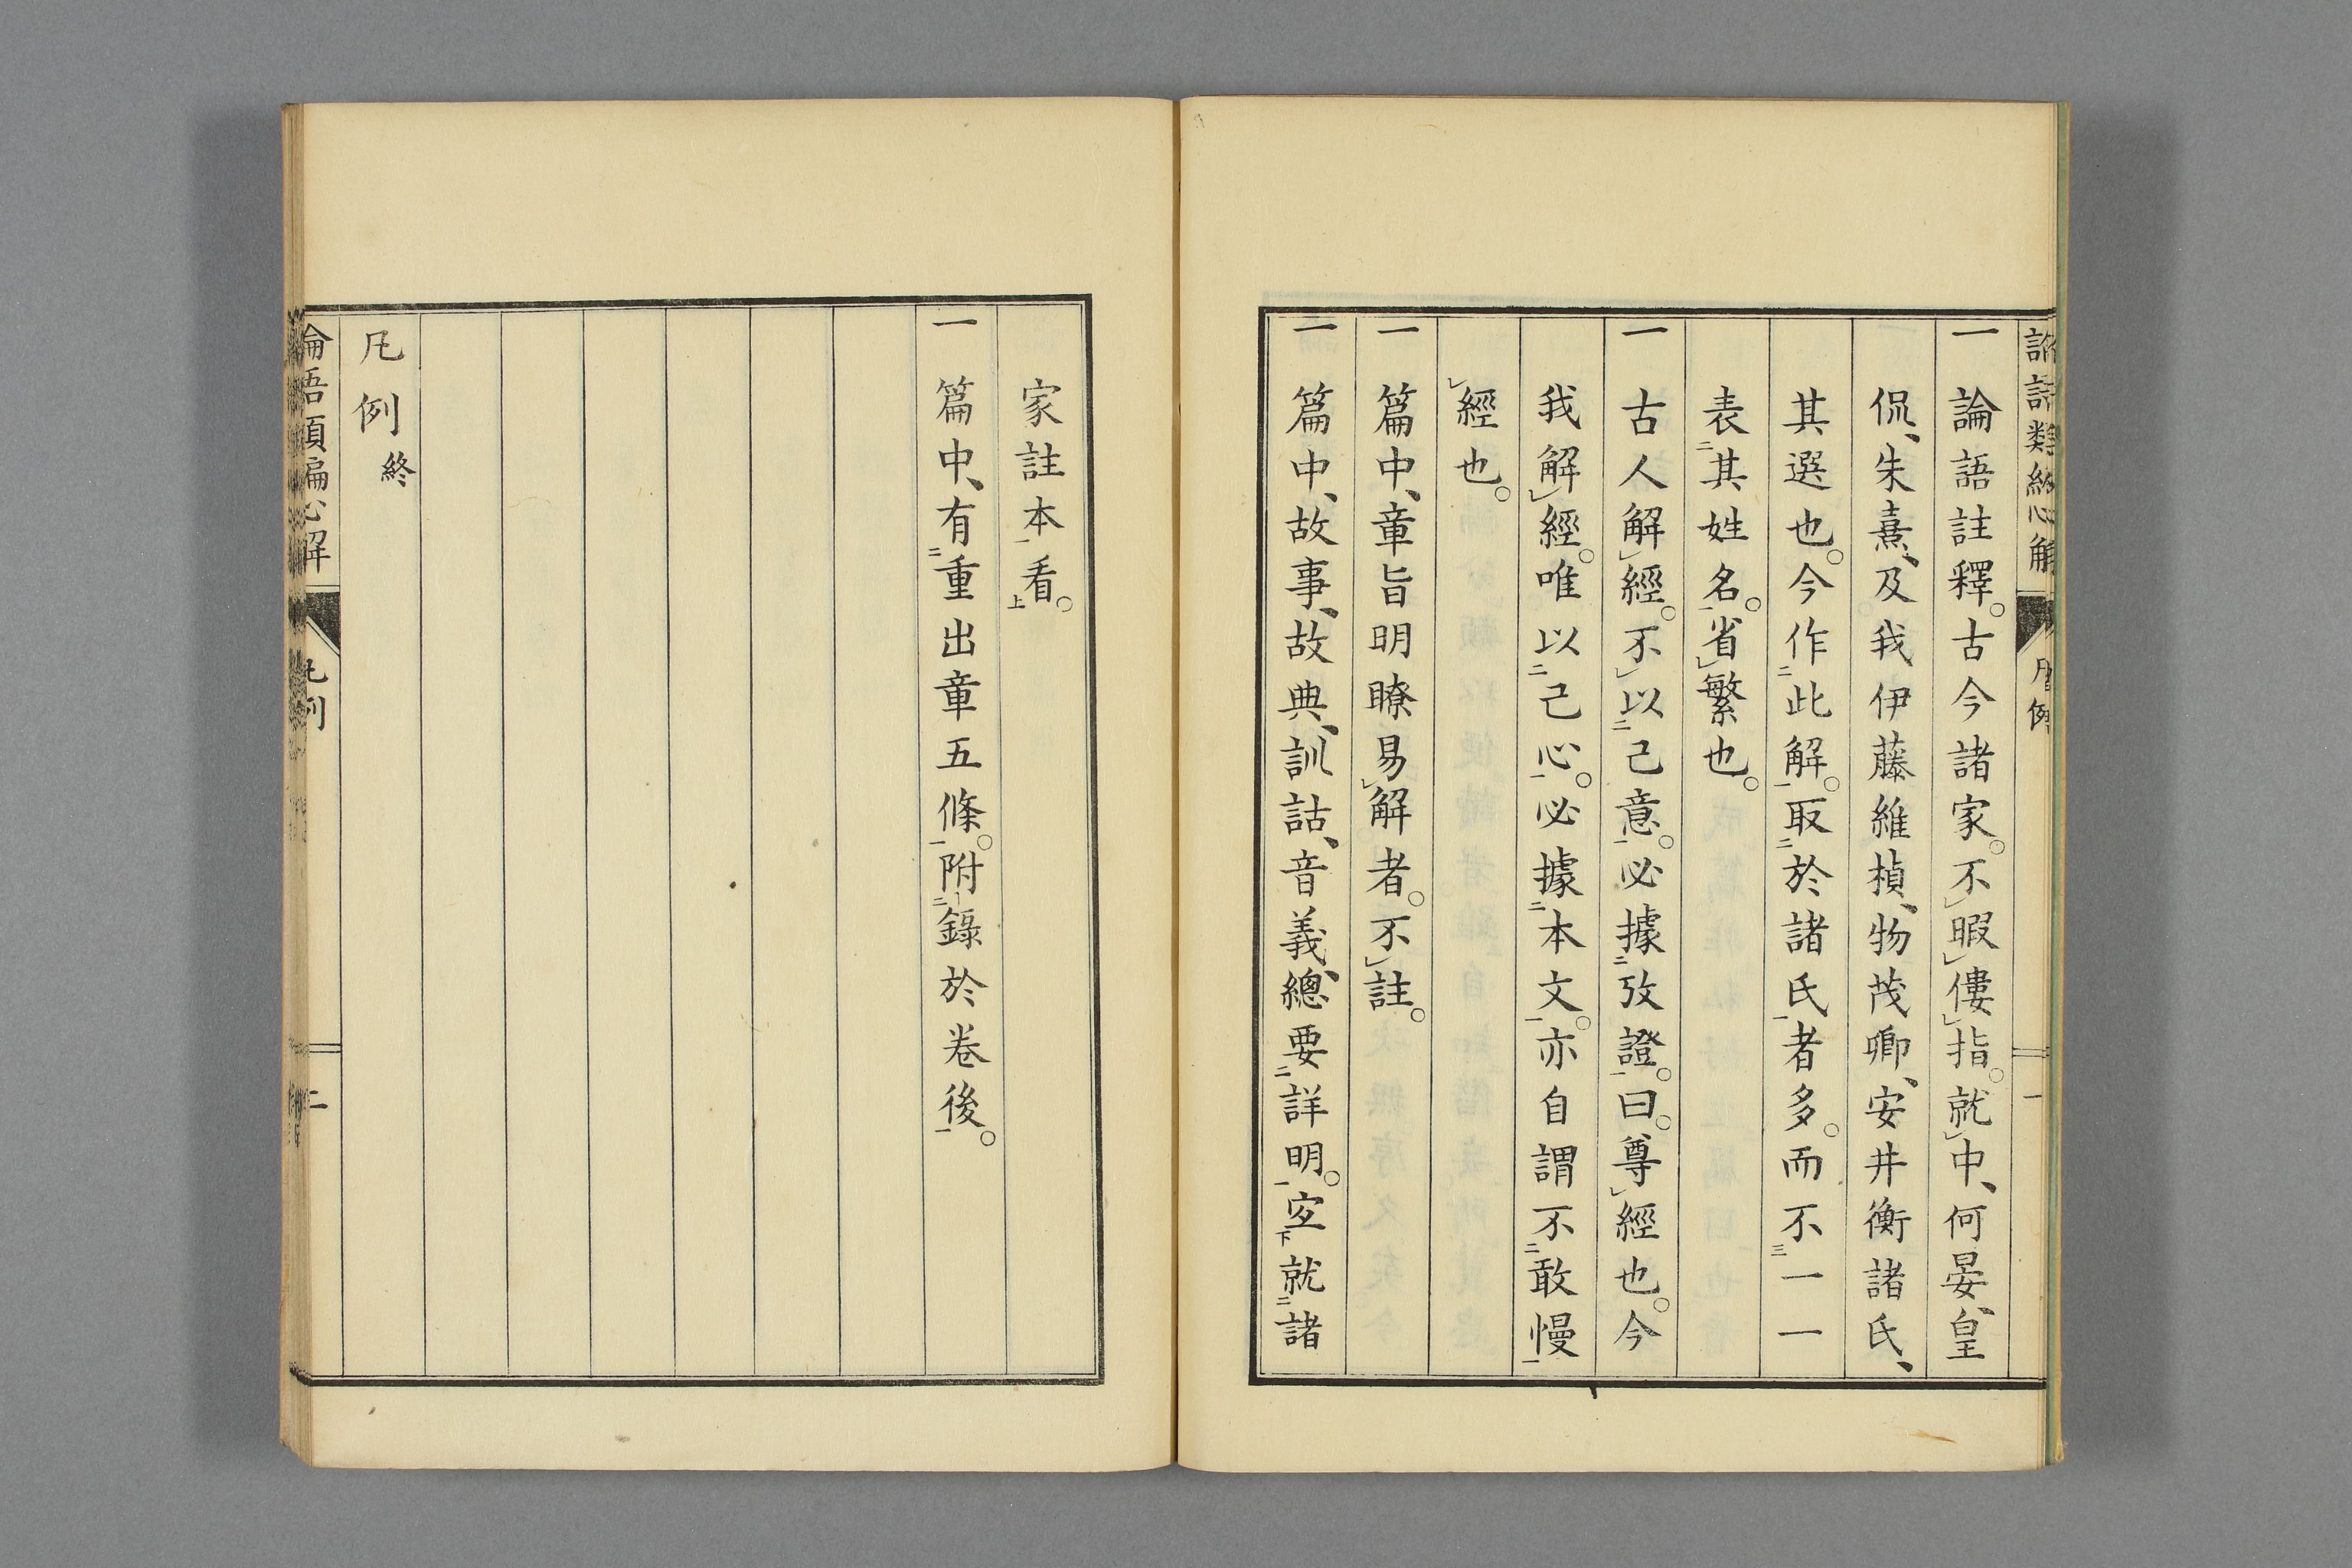 論語類編心解 凡例 一
一 論語註釋。古今諸家。不暇僂指。就中、何晏、皇
侃、朱熹、及我伊藤維楨、物茂卿、安井衡諸氏、
其選也。今作此解。取於諸氏者多。而不一一
表其姓名。省繁也。
一 古人解經。不以己意。必據攷證。曰。尊經也。今
我解經。唯以己心。必據本文。亦自謂不敢慢
經也。
一 篇中、章旨明瞭易解者。不註。
一 篇中、故事、故典、訓詁、音義、總要詳明。宜就諸
家註本看。
一 篇中、有重出章五條。附錄於卷後。
凡例終
論語類編心解 凡例 二